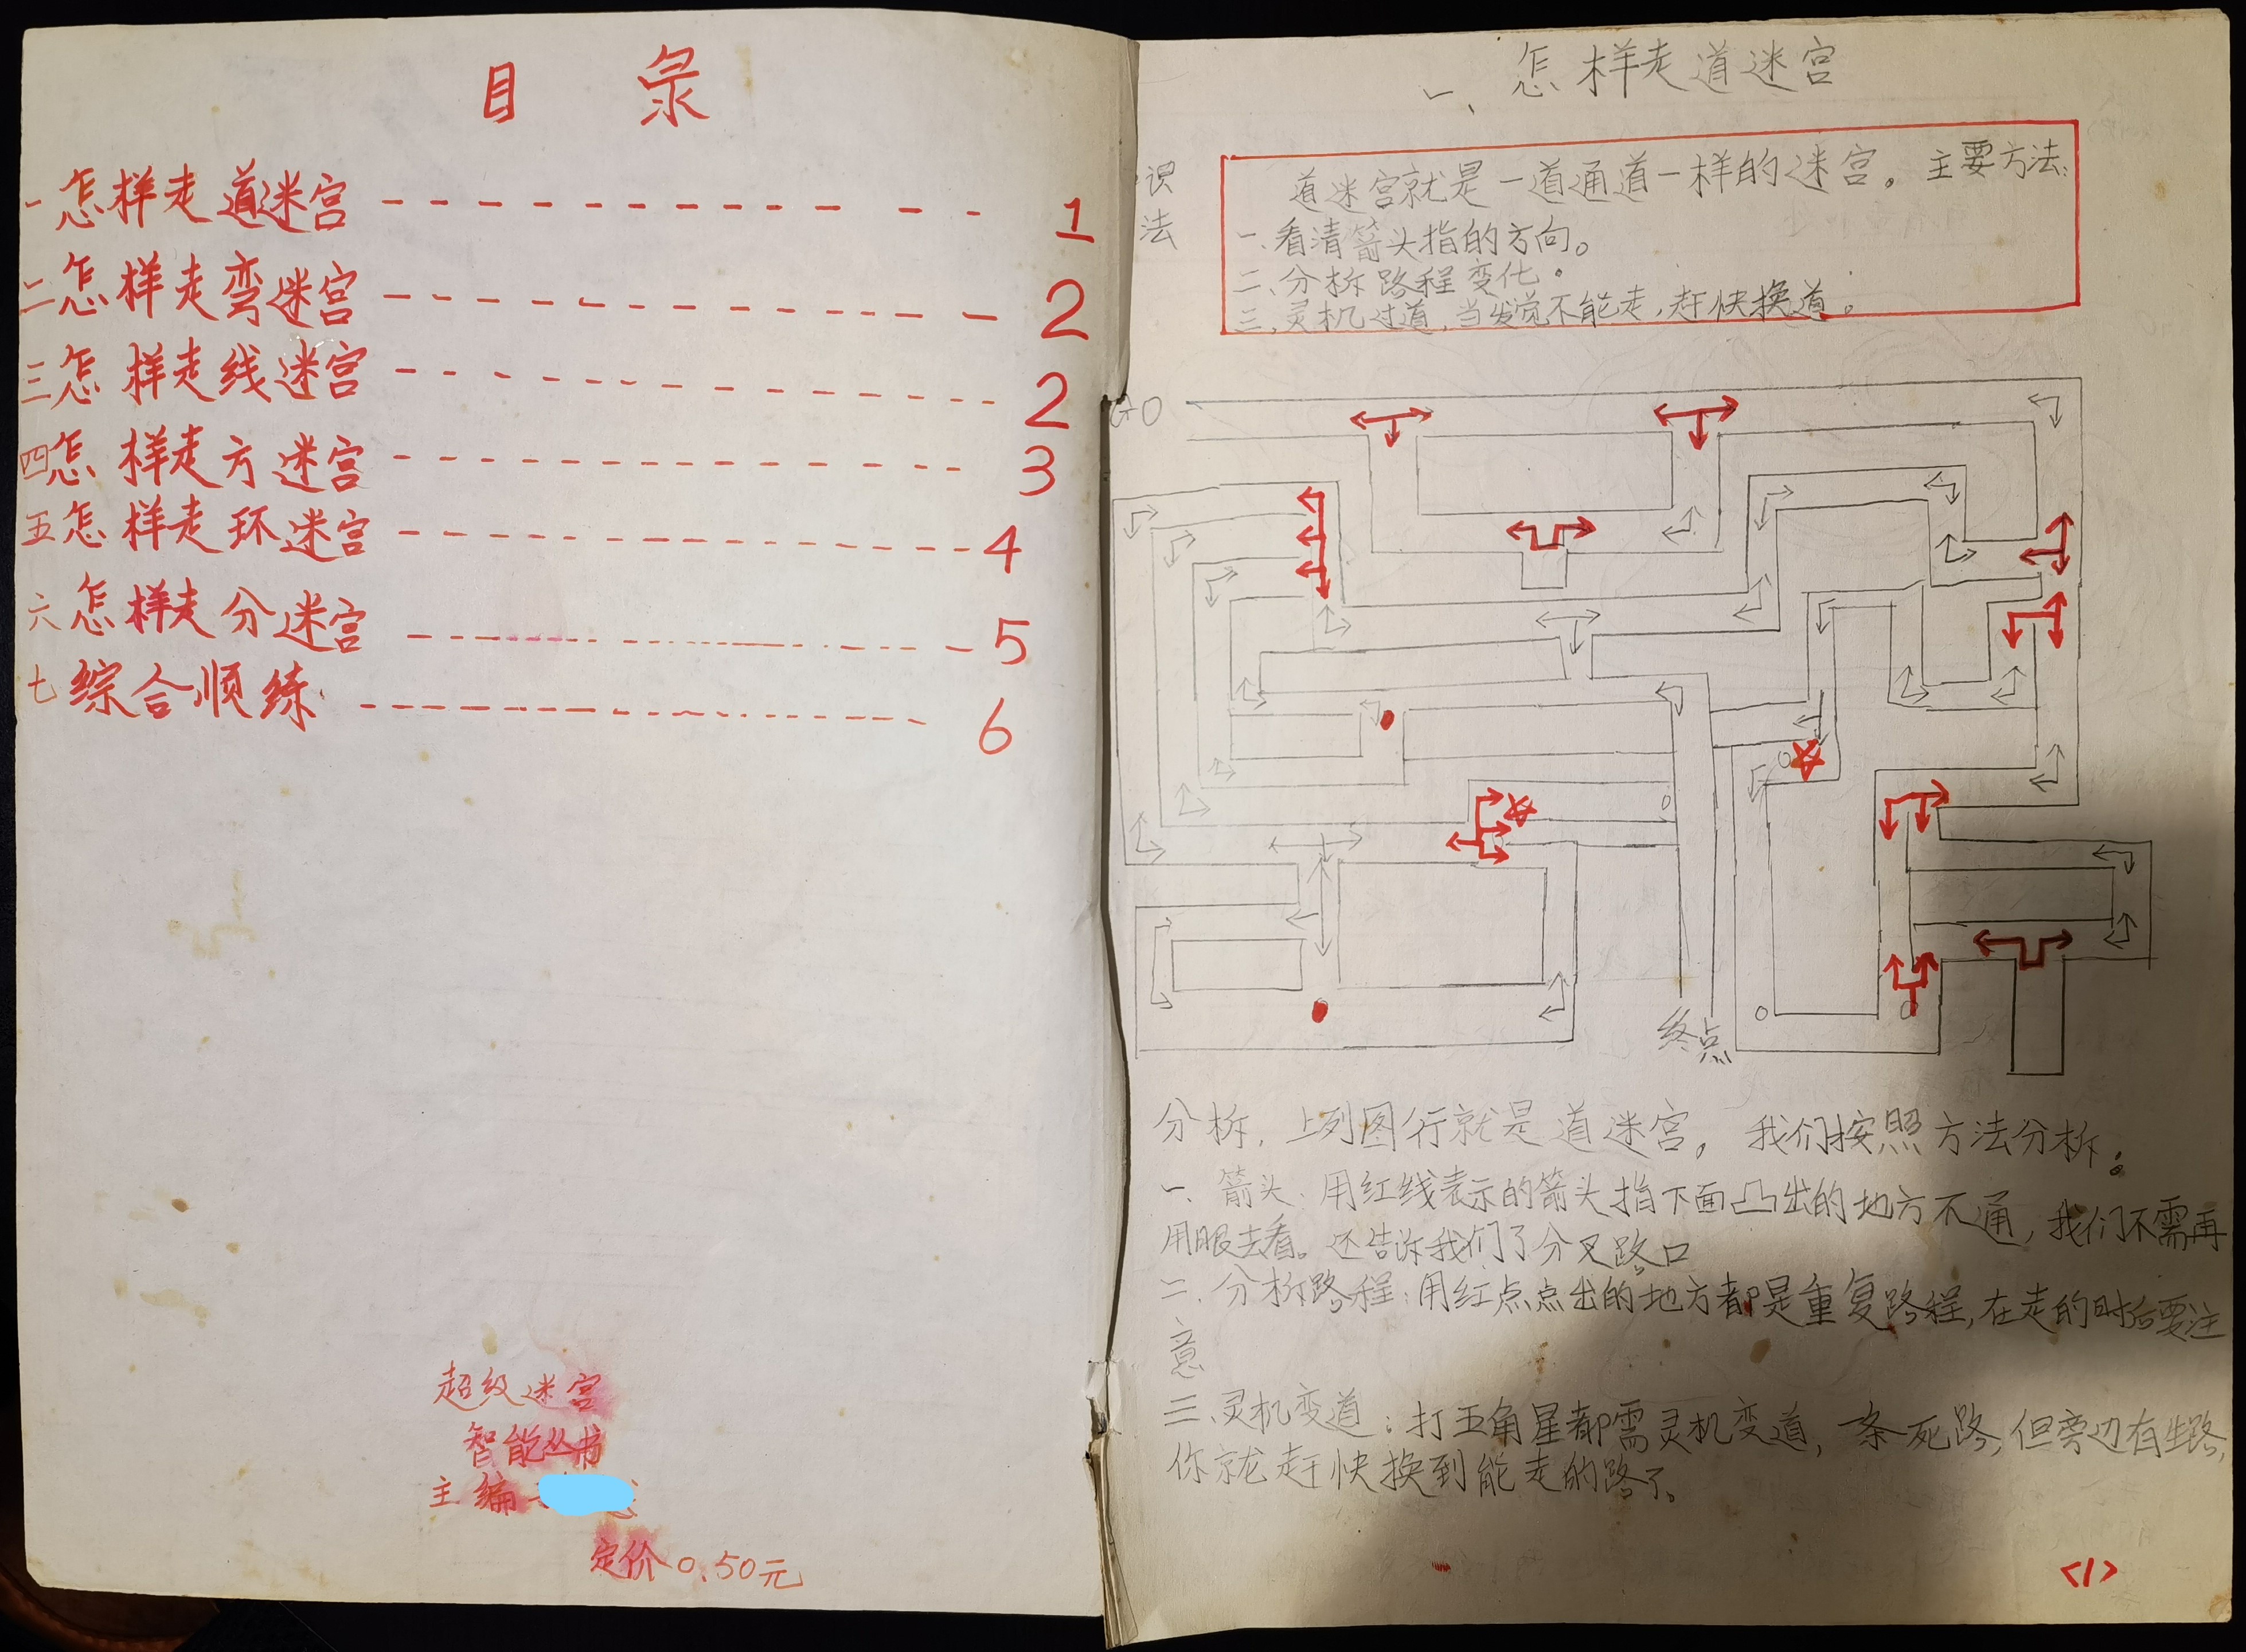 目 录
一怎样走道迷宫 1
二怎样走弯迷宫 2
三怎样走线迷宫 2
四怎样走方迷宫 3
五怎样走环迷宫 4
六怎样走分迷宫 5
七综合顺练 6
超级迷宫
智能丛书
主编
定价0.50元
一、怎样走道迷宫
识法
道迷宫就是一道通道一样的迷宫。主要方法:
一、看清箭头指的方向。
二、分柝路程变化。
三、灵机过道,当发觉不能走,赶快换道。
GO
终点
分柝,上列图行就是道迷宫,我们按照方法分柝:
一、箭头:用红线表示的箭头指下面凸出的地方不通,我们不需再
用眼去看。还告诉我们了分叉路口
二、分柝路程:用红点点出的地方都是重复路程,在走的时后要注
意
三、灵机变道:打五角星都需灵机变道,一条死路,但旁边有生路,
你就赶快换到能走的路了。
<1>